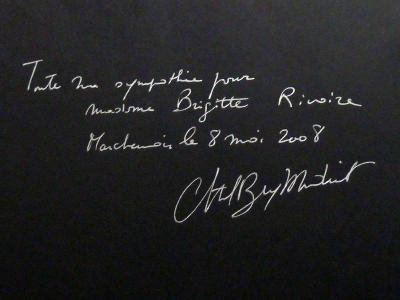 Toute ma sympathie pour
madame Brigitte Rivoire
Marchenoir le 8 mai 2008